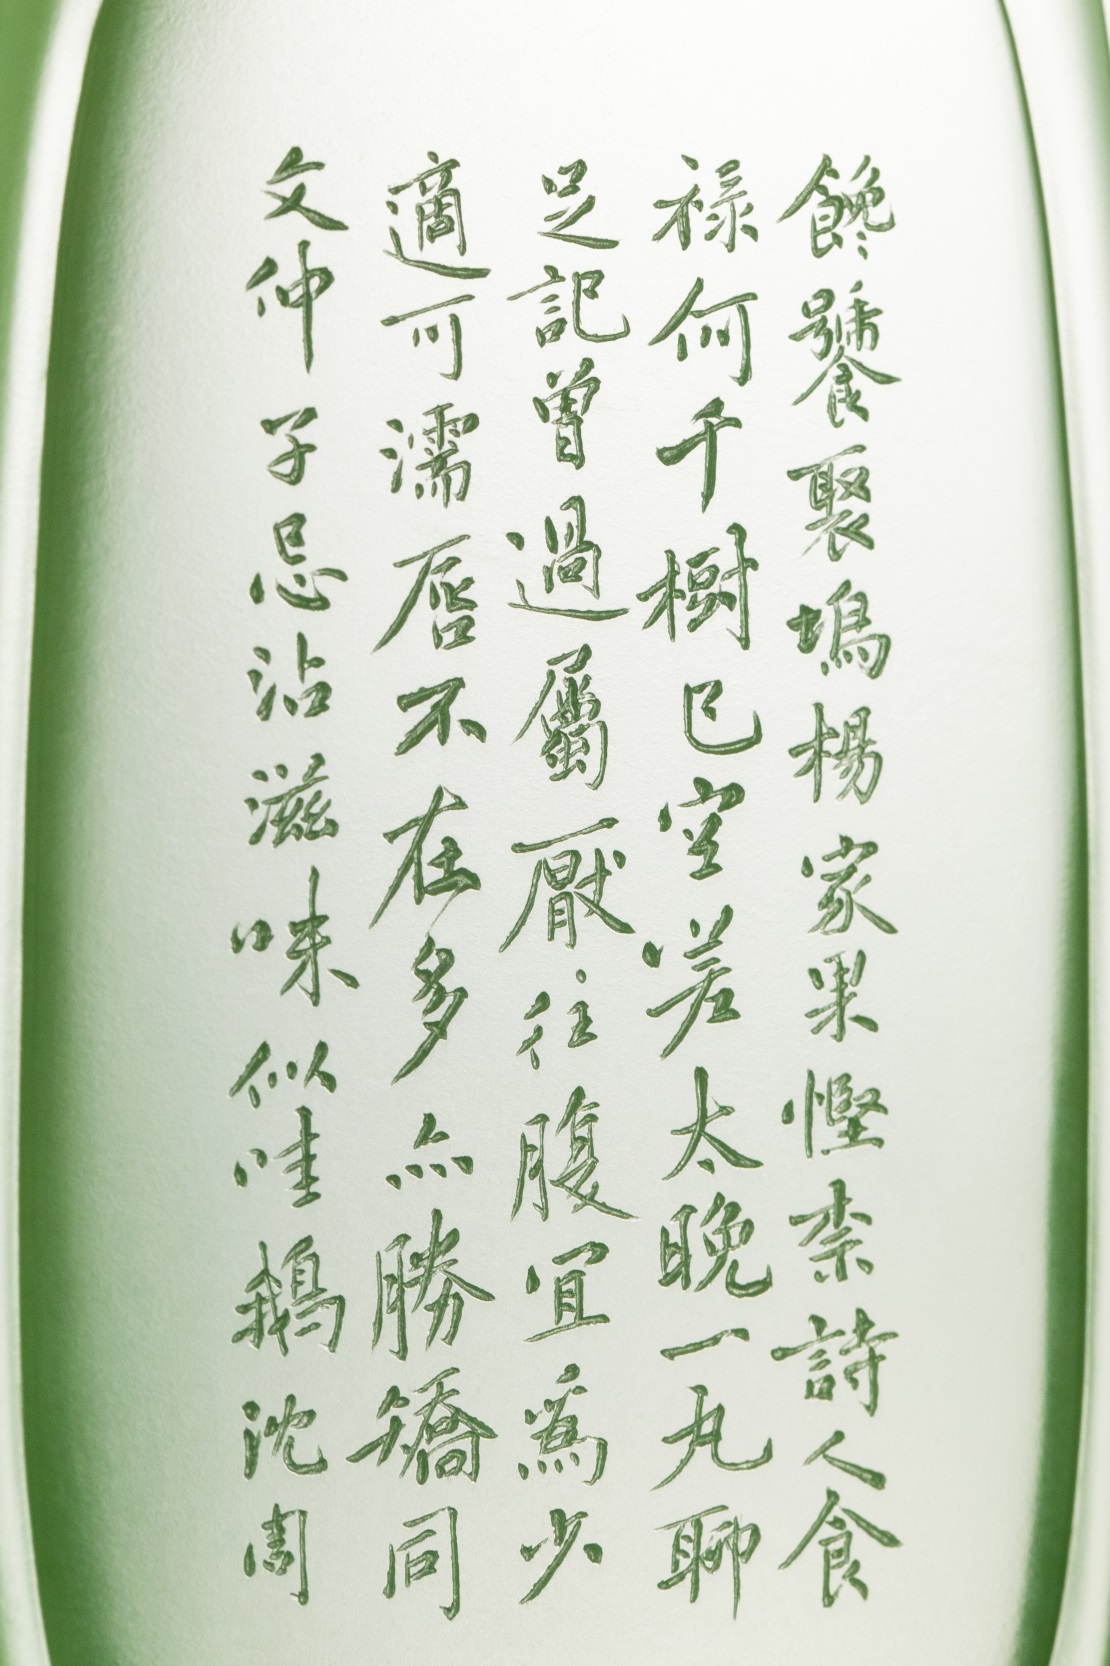 饞饕聚塢楊家果慳柰詩人食
禄何千樹已空差太晚一丸聊
足記曾過屬厭往腹宜為少
適可濡唇不在多亦勝矯同
文仲子忌沾滋味似哇鵝沈周